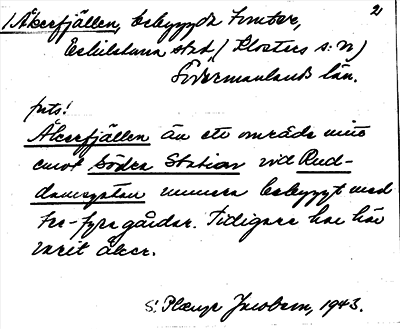 1 Åkerfjällen, bebyggda tomter, 2
Eskilstuna stad (Klosters s:n)
Södermanlands län.
puts!
Åkerfjällen är ett område mitt
emot Södra Station vid Rud-
damsgatan numera bebyggt med
tre-fyra gårdar. Tidigare har här
varit åker.
Jacobson, 1943.